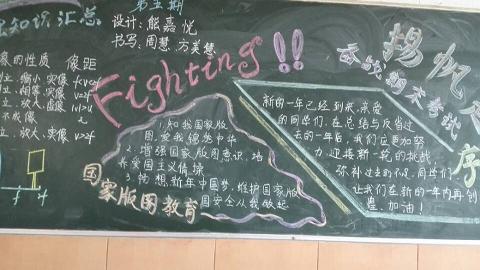 知识汇总
像的性质 像距
倒立、缩小、实像 f<v<2f
倒立、相等、实像 v=2f
正立、放大、虚像
不成像
倒立、放大、实像 v>2f
f
第五期
设计:熊嘉悦
书写:周慧、方美慧
Fighting!!
1.知我国家版
图,爱我锦绣中华
2.增强国家版图意识,培
养爱国主义情操
3.畅想新年中国梦,维护国家版
图安全从我做起
国家版图教育
扬帆
奋战期末考试
序
新的一年已经到来,亲爱
的同学们,在总结与反省过
去的一年后,我们应更加努
力,迎接新一轮的挑战
弥补过去的不足,同学们
让我们在新的一年内再创
辉煌,加油!